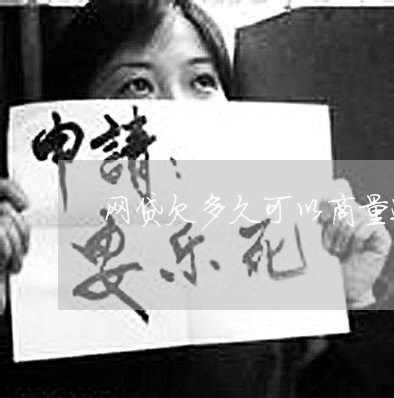 申請：
网贷欠多久可以商量
安乐死